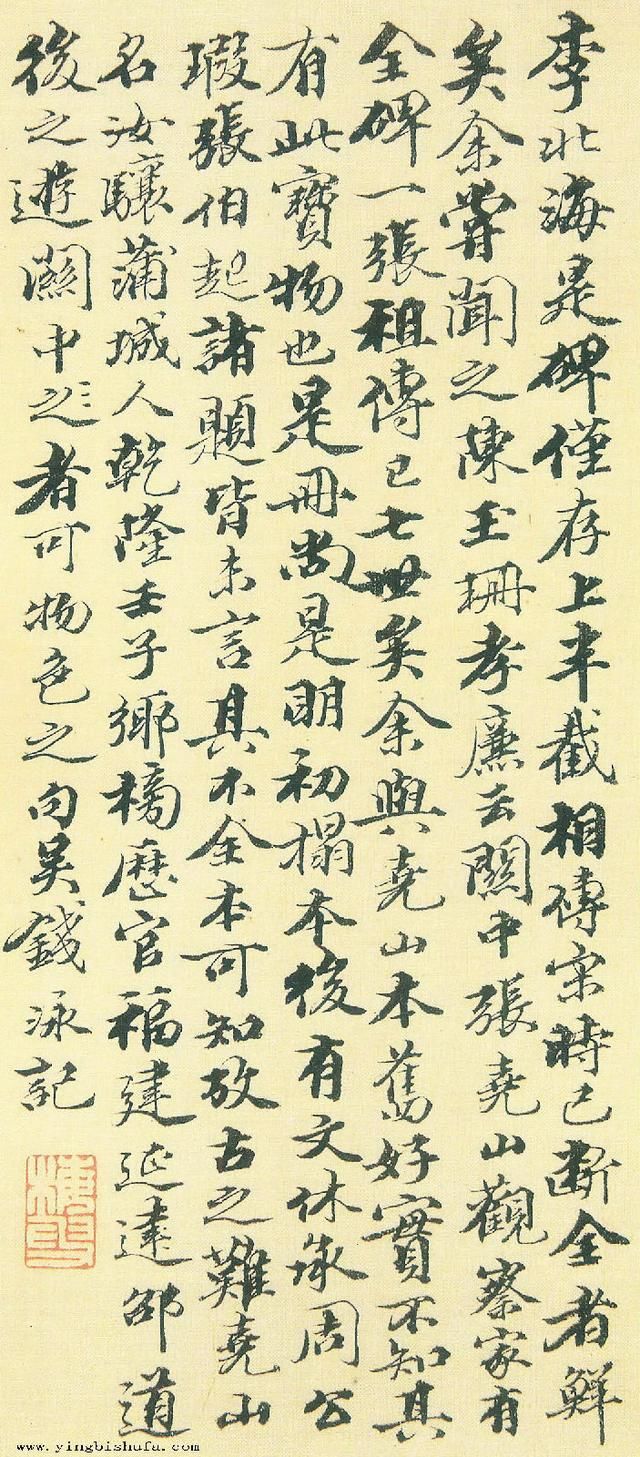 李北海是碑僅存上半截相傳宋時已斷全者鮮
矣余嘗聞之陳玉珊孝廉云關中張堯山觀察家有
全碑一張祖傳已七世矣余與堯山本舊好實不知其
有此寶物也是冊尚是明初搨本後有文休承周公
瑕張伯起諸題皆未言其不全本可知故古之難堯山
名汝驤蒲城人乾隆壬子鄉榜歷官福建延建邵道
後之遊關中之者可物色之句吳錢泳記
www.yingbishufa.com